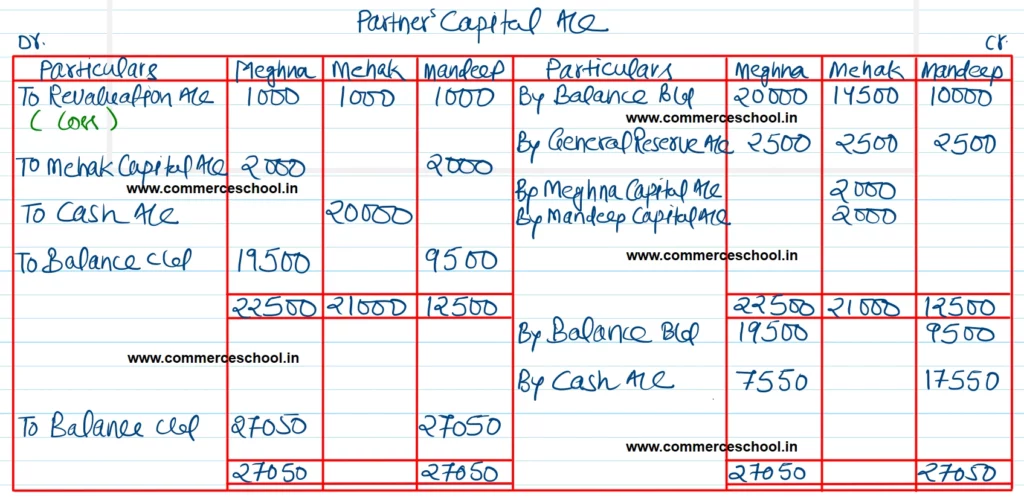 Partner's Capital A/c
Dr. Cr.
Particulars Meghna Mehak Mandeep Particulars Meghna Mehak Mandeep
To Revaluation A/c 1000 1000 1000 By Balance B/d 20000 14500 10000
(Loss) www.commerceschool.in
By General Reserve A/c 2500 2500 2500
To Mehak Capital A/c 2000 2000
www.commerceschool.in By Meghna Capital A/c 2000
To Cash A/c 20000 By Mandeep Capital A/c 2000
To Balance c/d 19500 9500 www.commerceschool.in
22500 21000 12500 22500 21000 12500
By Balance B/d 19500 9500
www.commerceschool.in
By Cash A/c 7550 17550
To Balance c/d 27050 27050
www.commerceschool.in
27050 27050 27050 27050